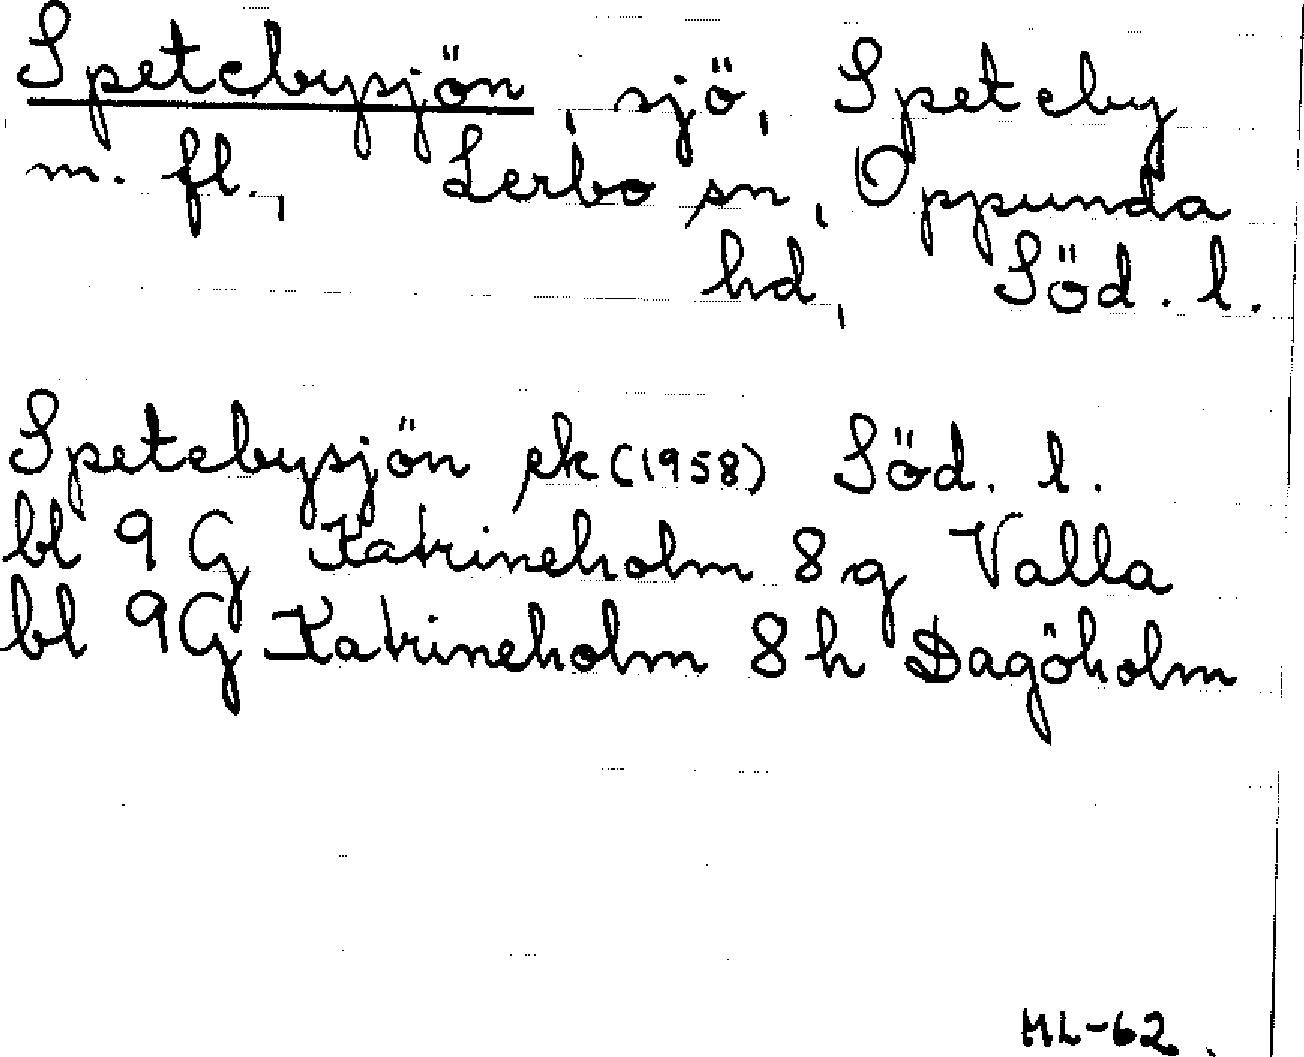 Spetebysjön, sjö, Speteby
m. fl., Lerbo sn, Oppunda
hd, Söd. l.
Spetebysjön ek (1958) Söd. l.
bl 9 G Katrineholm 8 g Valla
bl 9G Katrineholm 8 h Dagöholm
ML-62.